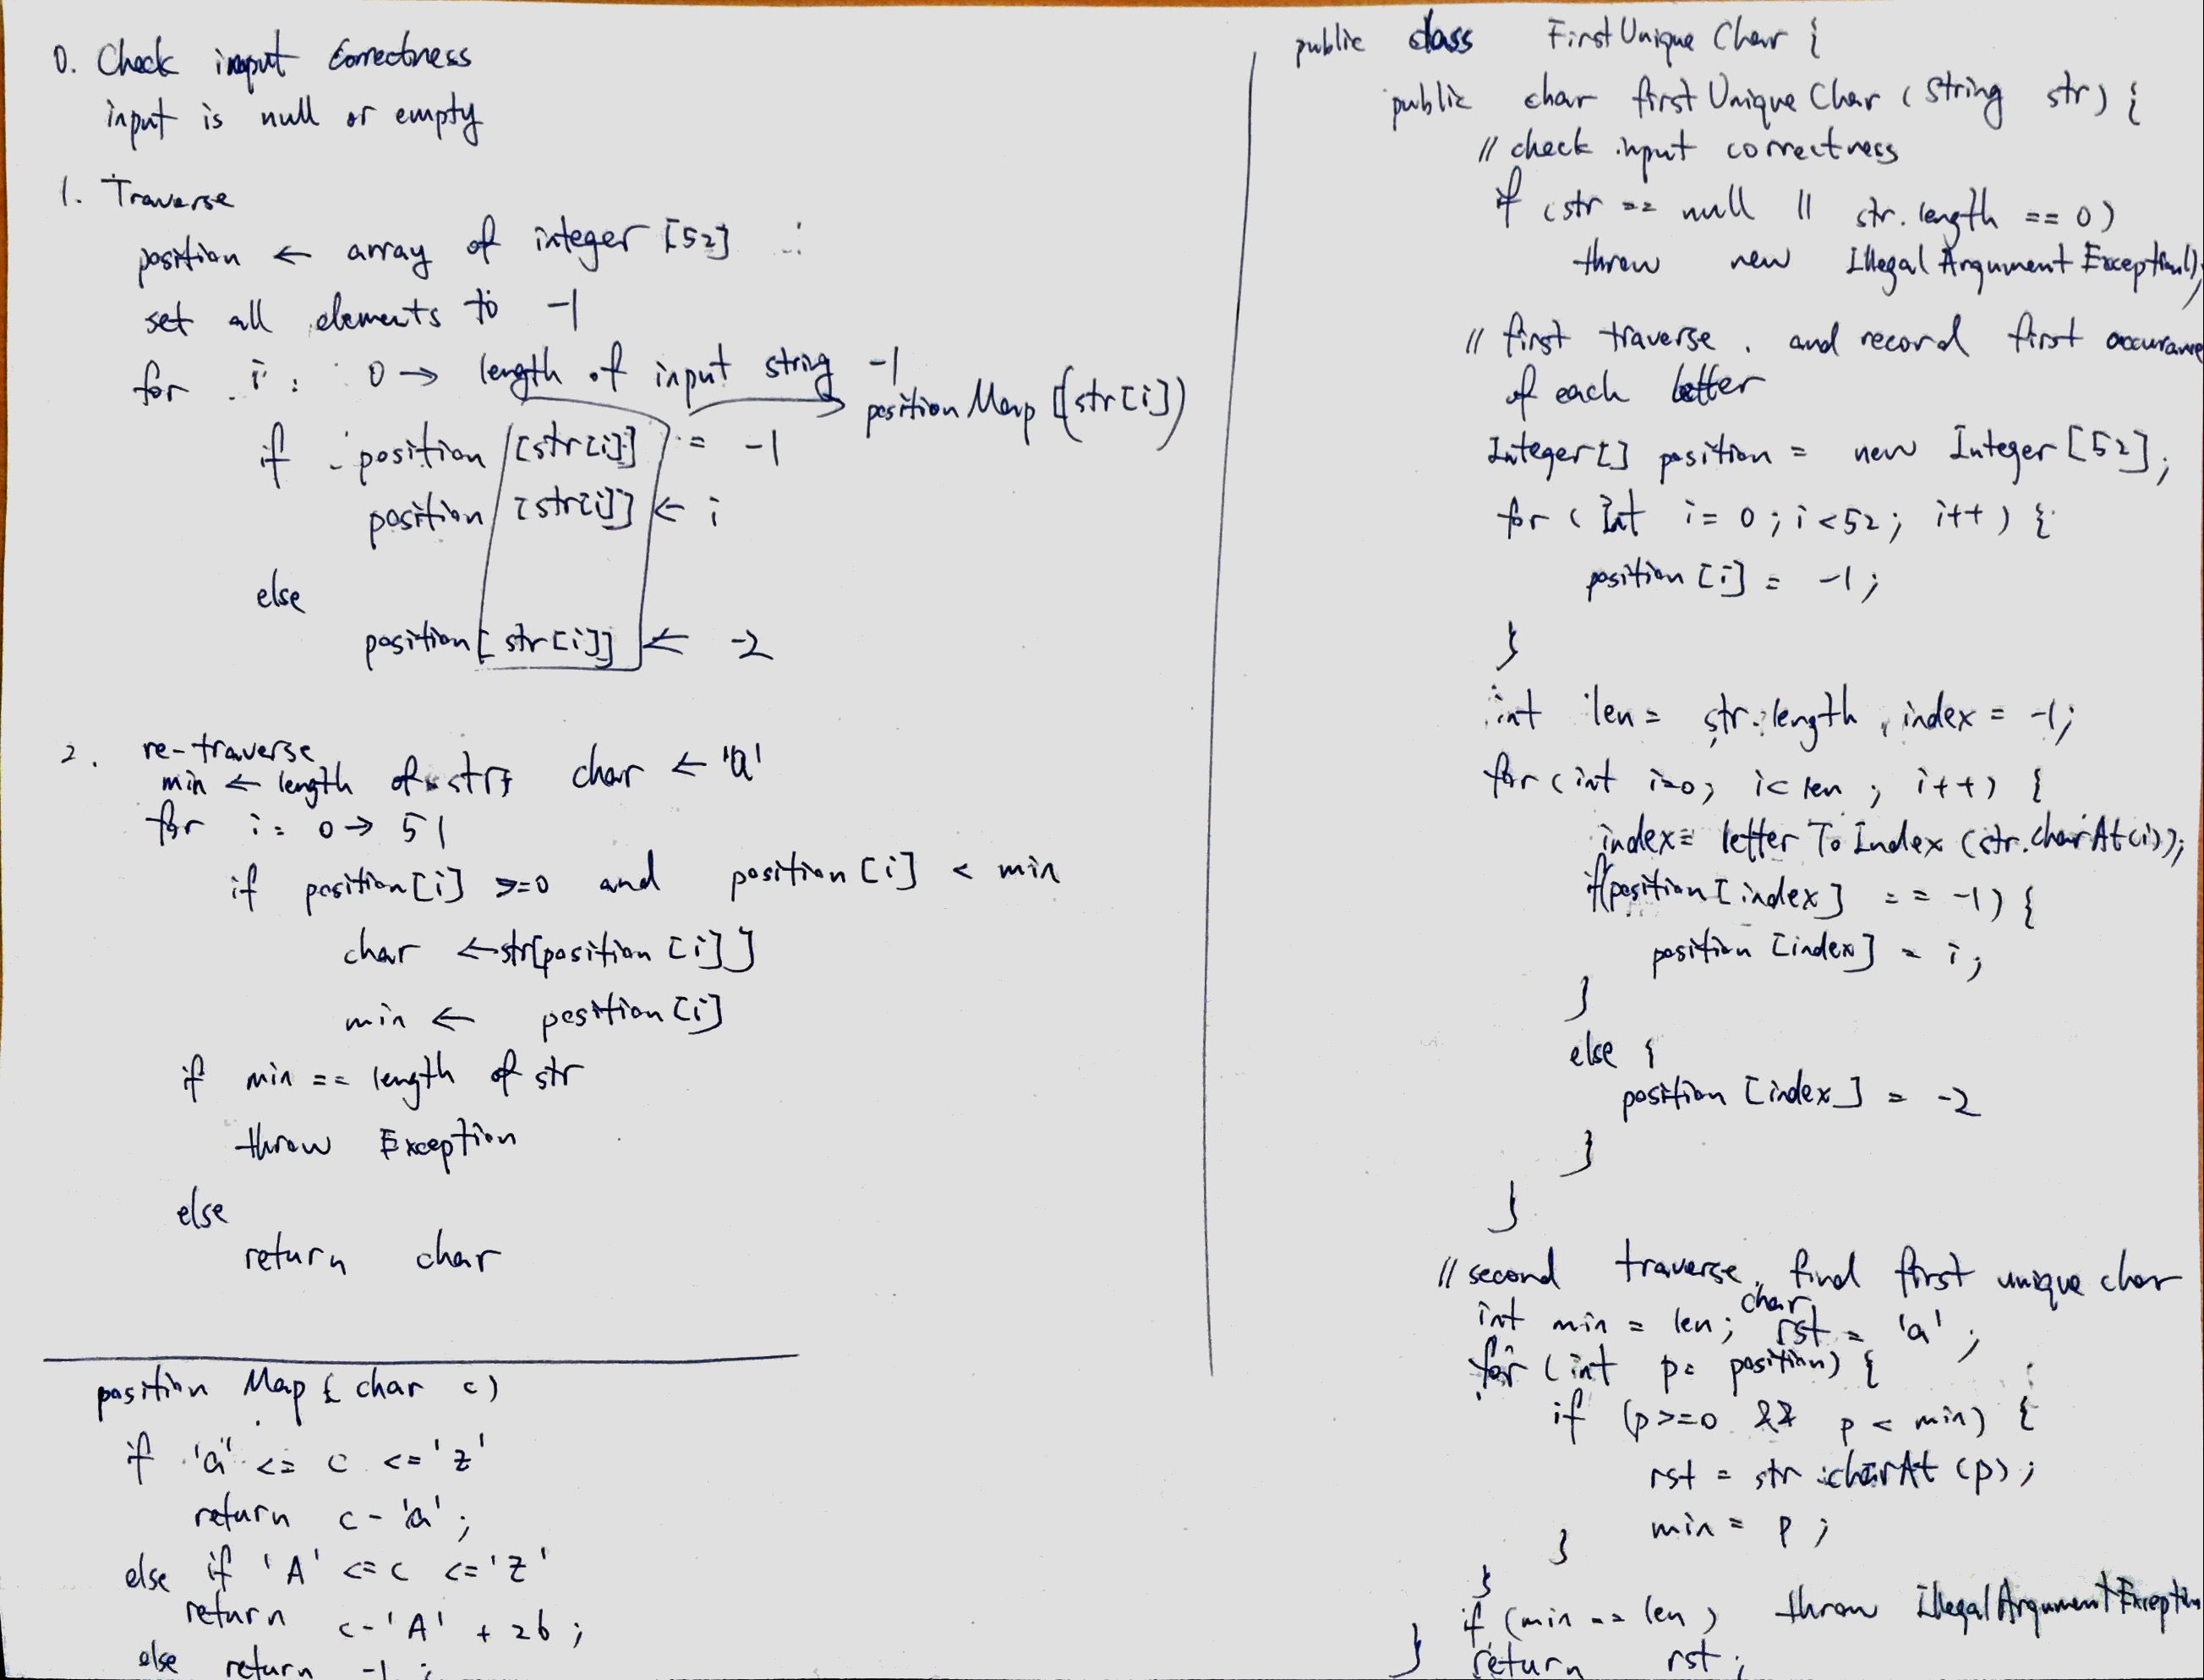 0. Check input correctness
input is null or empty
1. Traverse
position ← array of integer [52]
set all elements to -1
for i : 0 → length of input string -1
positionMap (str[i])
if position [str[i]] = -1
position [str[i]] ← i
else
position [str[i]] ← -2
2. re-traverse
min ← length of str, char ← 'a'
for i = 0 → 51
if position[i] >=0 and position[i] < min
char ← str[position[i]]
min ← position[i]
if min == length of str
throw Exception
else
return char
position Map ( char c)
if 'a' <= c <= 'z'
return c - 'a' ;
else if 'A' <= c <= 'Z'
return c - 'A' + 26 ;
else return -1 ;
public class FirstUniqueChar {
public char firstUniqueChar (String str) {
// check input correctness
if (str == null || str.length == 0)
throw new IllegalArgumentException();
// first traverse, and record first occurance
of each letter
Integer[] position = new Integer[52];
for ( Int i = 0 ; i < 52 ; i++ ) {
position [i] = -1 ;
}
int len = str.length, index = -1;
for (int i=0; i < len ; i++) {
index = letterToIndex (str.charAt(i));
if(position[index] == -1) {
position [index] = i ;
}
else {
position [index] = -2
}
}
// second traverse, find first unique char
int min = len; char rst = 'a' ;
for (int p : position) {
if (p >=0 && p < min) {
rst = str.charAt (p) ;
min = p ;
}
}
if (min == len ) throw IllegalArgumentException
} return rst ;